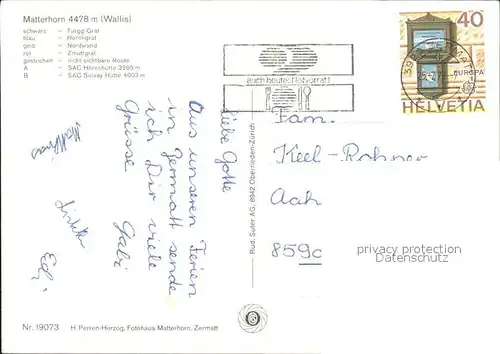 Matterhorn 4478 m (Wallis)
schwarz = Furgg-Grat
blau = Hörnligrat
gelb = Nordwand
rot = Zmuttgrat
gestrichelt = nicht sichtbare Route
A = SAC Hörnlihütte 3260 m
B = SAC Solvay Hütte 4003 m
Liebe Gotte
Aus unseren Ferien
in Zermatt sende
ich Dir viele
Grüsse Gabi
Matthias
Edi
Nr. 19073 H. Perren-Herzog, Fotohaus Matterhorn, Zermatt
Rud. Suter AG, 8942 Oberrieden-Zürich
auch heute: Notvorrat
40
EUROPA
HELVETIA
Fam.
Keel-Rohner
Aach
859c
privacy protection
Datenschutz